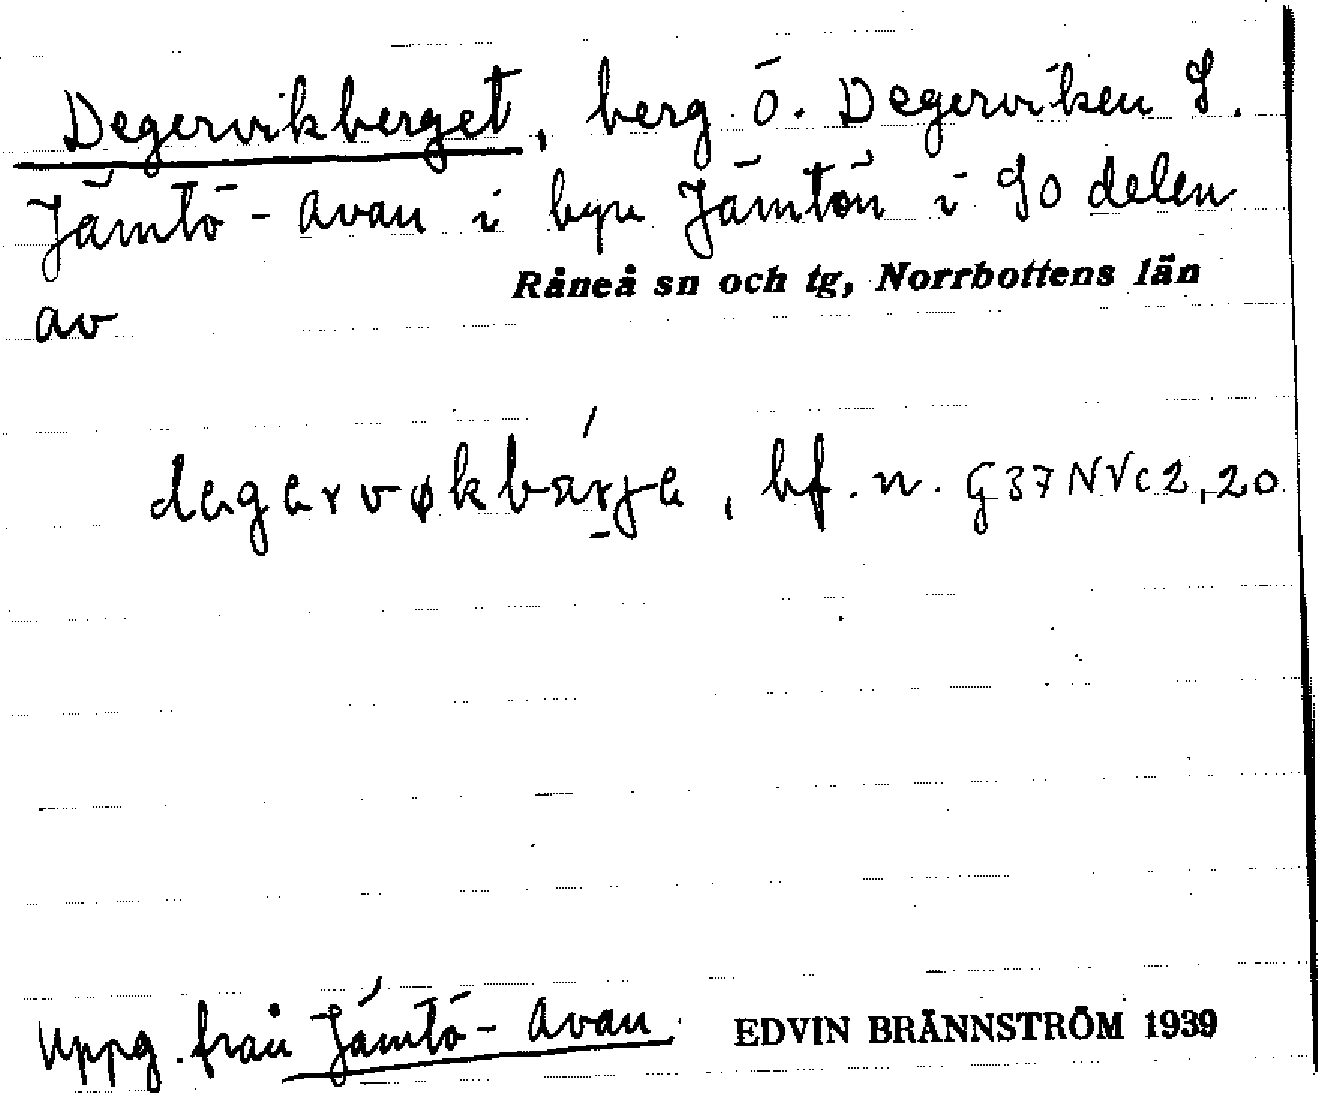 Degervikberget, berg ö. Degerviken S.
Jämtö-Avan i byn Jämtön i SO delen
Råneå sn och tg, Norrbottens län
av
dagarvøkbärja, bf. n. G37NVc2,20
Uppg. från Jämtö-Avan EDVIN BRÄNNSTRÖM 1939